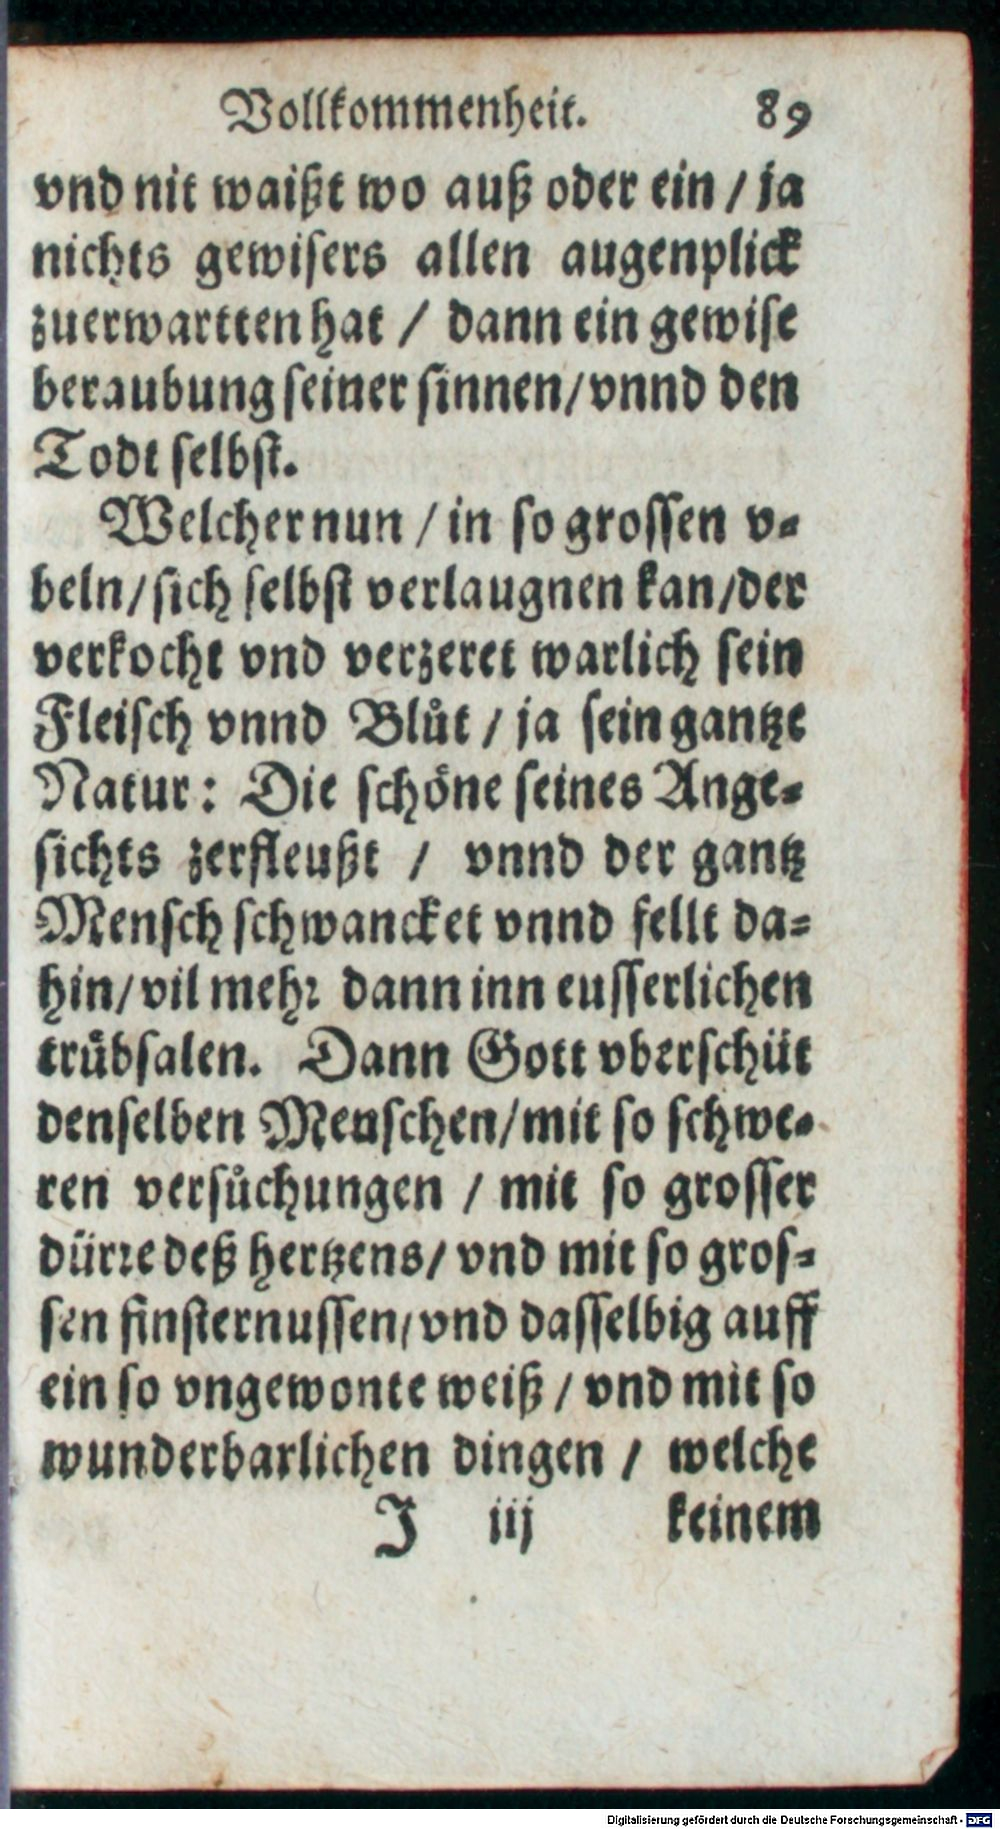 Vollkommenheit. 89
vnd nit waißt wo auß oder ein / ja
nichts gewisers allen augenplick
zuerwartten hat / dann ein gewise
beraubung seiner sinnen / vnnd den
Todt selbst.
Welcher nun / in so grossen v-
beln / sich selbst verlaugnen kan / der
verkocht vnd verzeret warlich sein
Fleisch vnnd Blůt / ja sein gantze
Natur: Die schöne seines Ange-
sichts zerfleußt / vnnd der gantz
Mensch schwancket vnnd fellt da-
hin / vil mehr dann inn eusserlichen
trůbsalen. Dann Gott vberschüt
denselben Menschen / mit so schwe-
ren versůchungen / mit so grosser
dürre deß hertzens / vnd mit so gros-
sen finsternussen / vnd dasselbig auff
ein so vngewonte weiß / vnd mit so
wunderbarlichen dingen / welche
J iij keinem
Digitalisierung gefördert durch die Deutsche Forschungsgemeinschaft - DFG